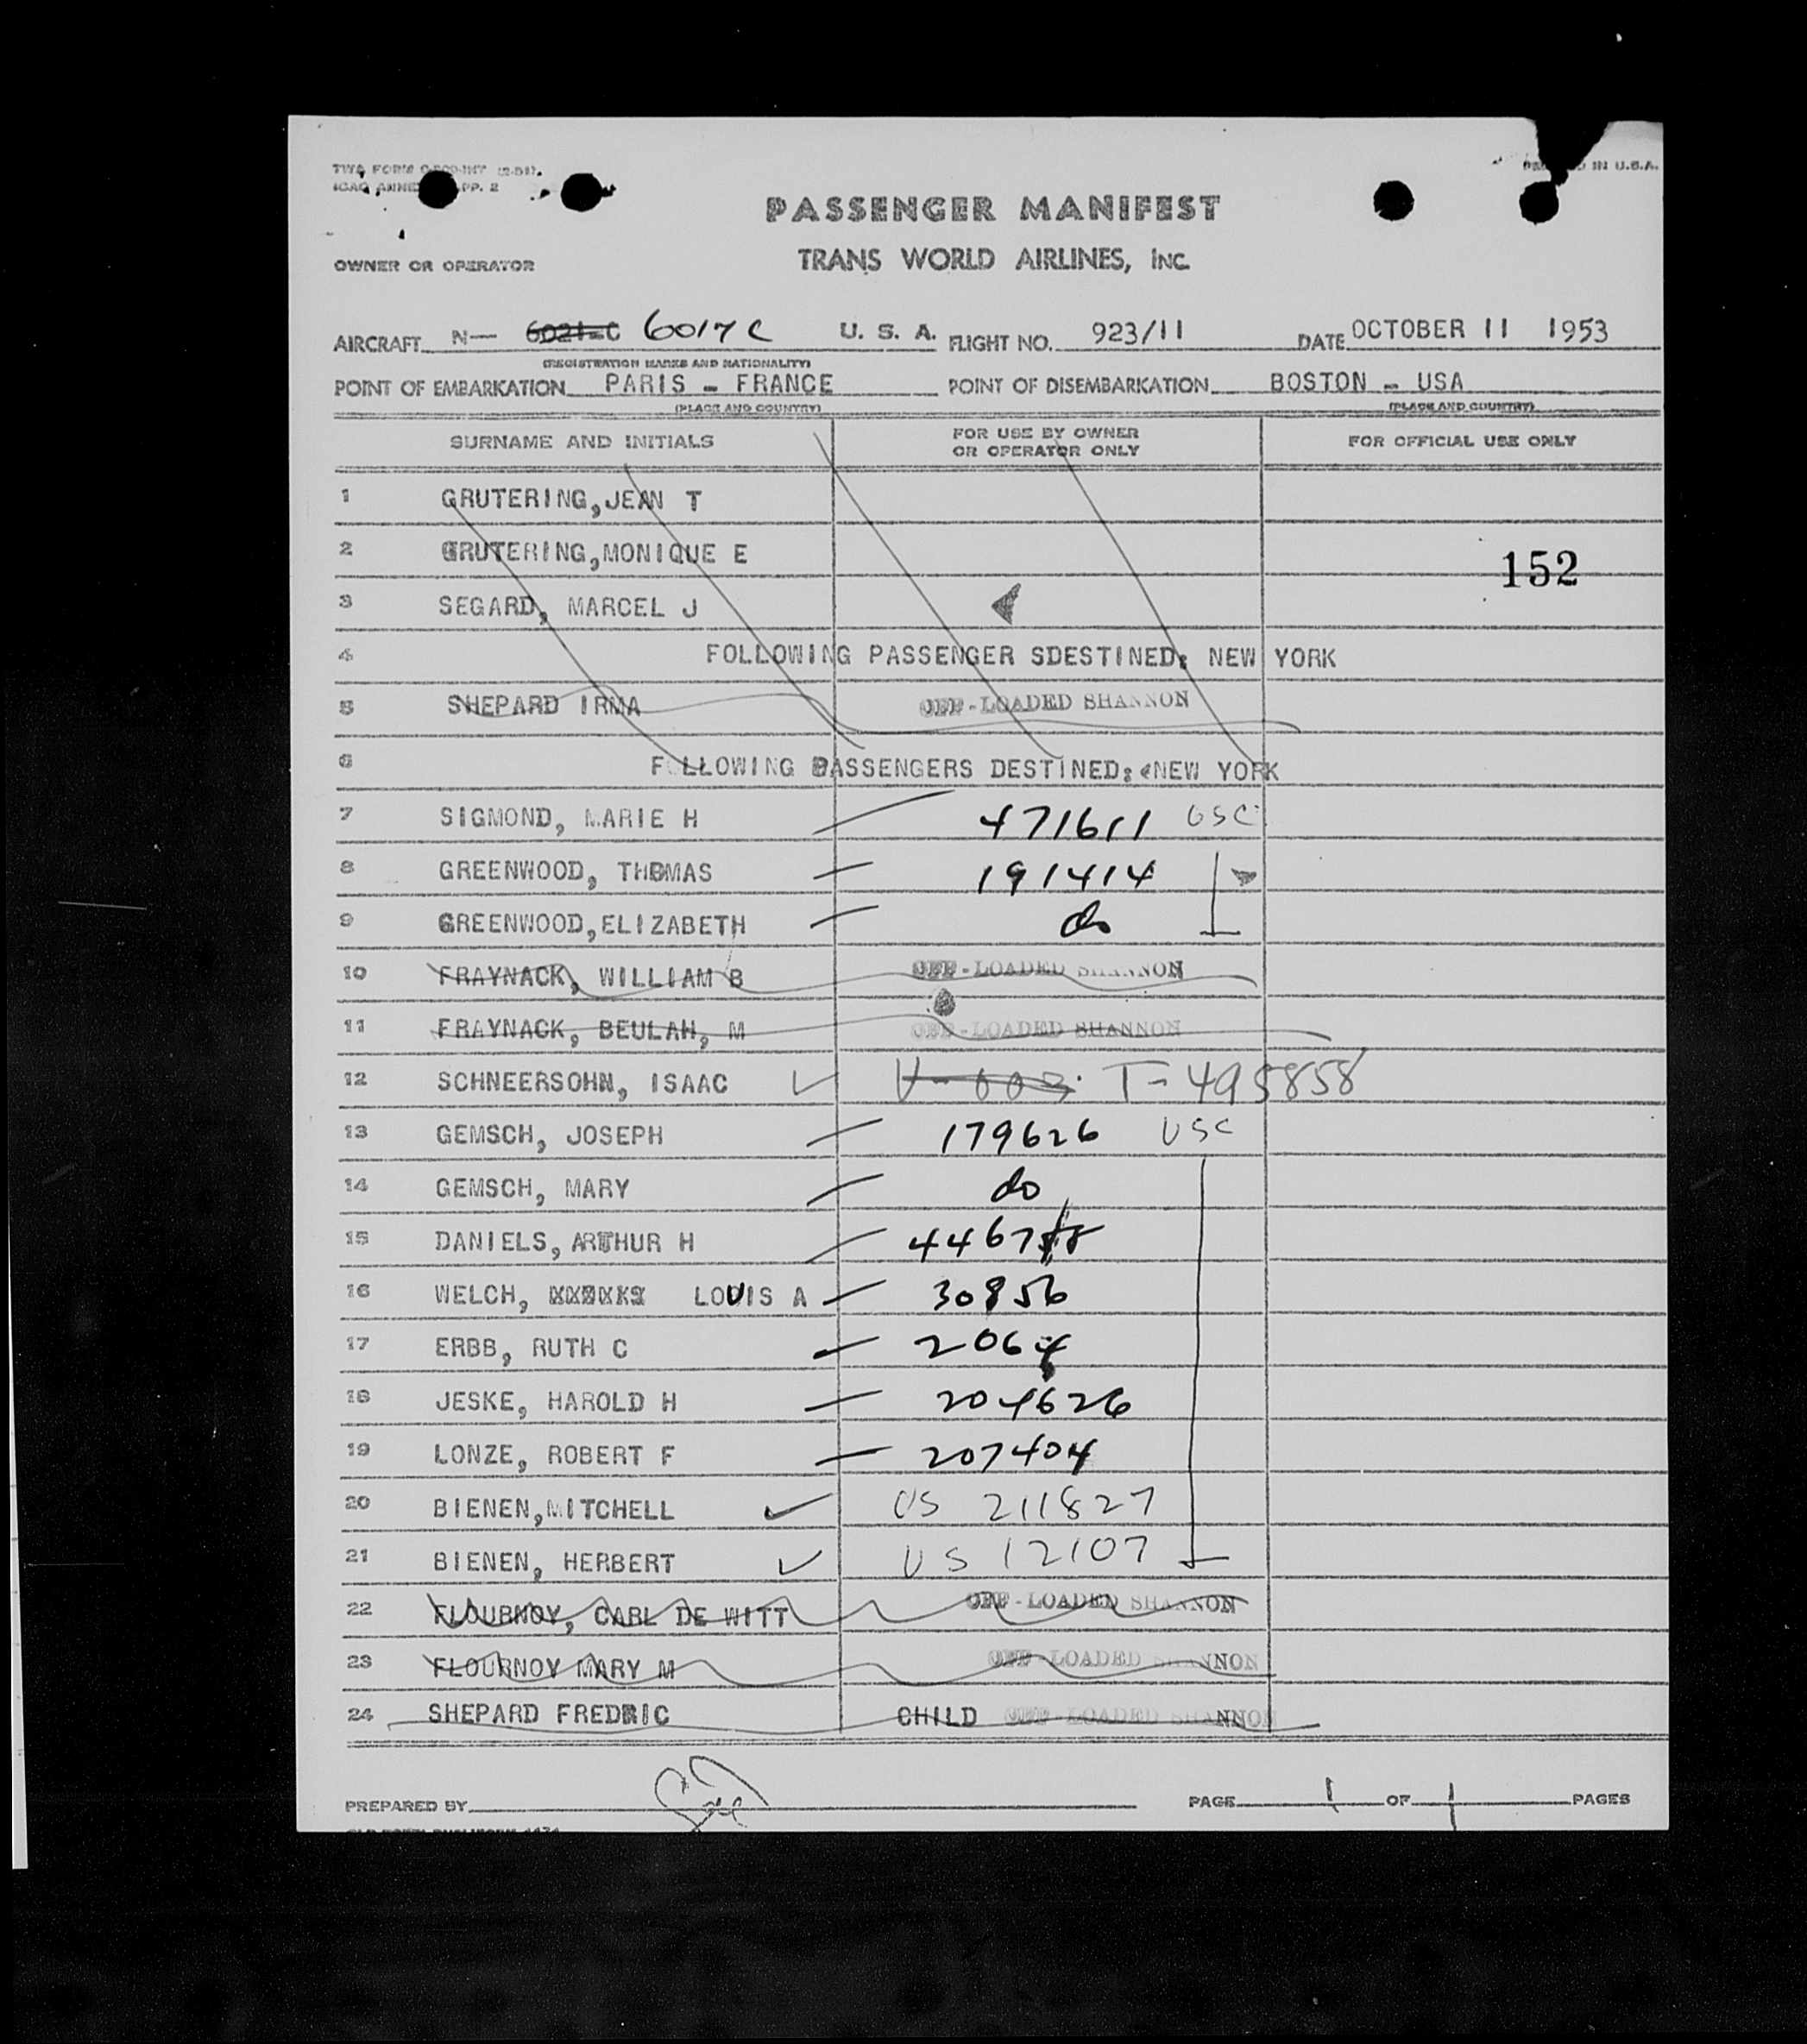 PRINTED IN U.S.A.
PASSENGER MANIFEST
OWNER OR OPERATOR TRANS WORLD AIRLINES, INC.
AIRCRAFT N— 6021-C 6017C U. S. A. FLIGHT NO. 923/11 DATE OCTOBER 11 1953
(REGISTRATION MARKS AND NATIONALITY)
POINT OF EMBARKATION PARIS - FRANCE POINT OF DISEMBARKATION BOSTON - USA
(PLACE AND COUNTRY) (PLACE AND COUNTRY)
SURNAME AND INITIALS FOR USE BY OWNER OR OPERATOR ONLY FOR OFFICIAL USE ONLY
1 GRUTERING,JEAN T
2 GRUTERING,MONIQUE E
152
3 SEGARD, MARCEL J
4 FOLLOWING PASSENGER SDESTINED: NEW YORK
5 SHEPARD IRMA OFF-LOADED SHANNON
6 FOLLOWING PASSENGERS DESTINED: NEW YORK
7 SIGMOND, MARIE H 471611 USC
8 GREENWOOD, THOMAS 191414
9 GREENWOOD,ELIZABETH do
10 FRAYNACK, WILLIAM B OFF-LOADED SHANNON
11 FRAYNACK, BEULAH, M OFF-LOADED SHANNON
12 SCHNEERSOHN, ISAAC T-495858
13 GEMSCH, JOSEPH 179626 USC
14 GEMSCH, MARY do
15 DANIELS, ARTHUR H
16 WELCH, LOUIS A 30856
17 ERBB, RUTH C 2064
18 JESKE, HAROLD H 204626
19 LONZE, ROBERT F 207404
20 BIENEN,MITCHELL US 211827
21 BIENEN, HERBERT US 12107
22 FLOURNOY, CARL DE WITT OFF-LOADED SHANNON
23 FLOURNOY MARY M OFF-LOADED SHANNON
24 SHEPARD FREDRIC CHILD OFF-LOADED SHANNON
PREPARED BY PAGE 1 OF 1 PAGES